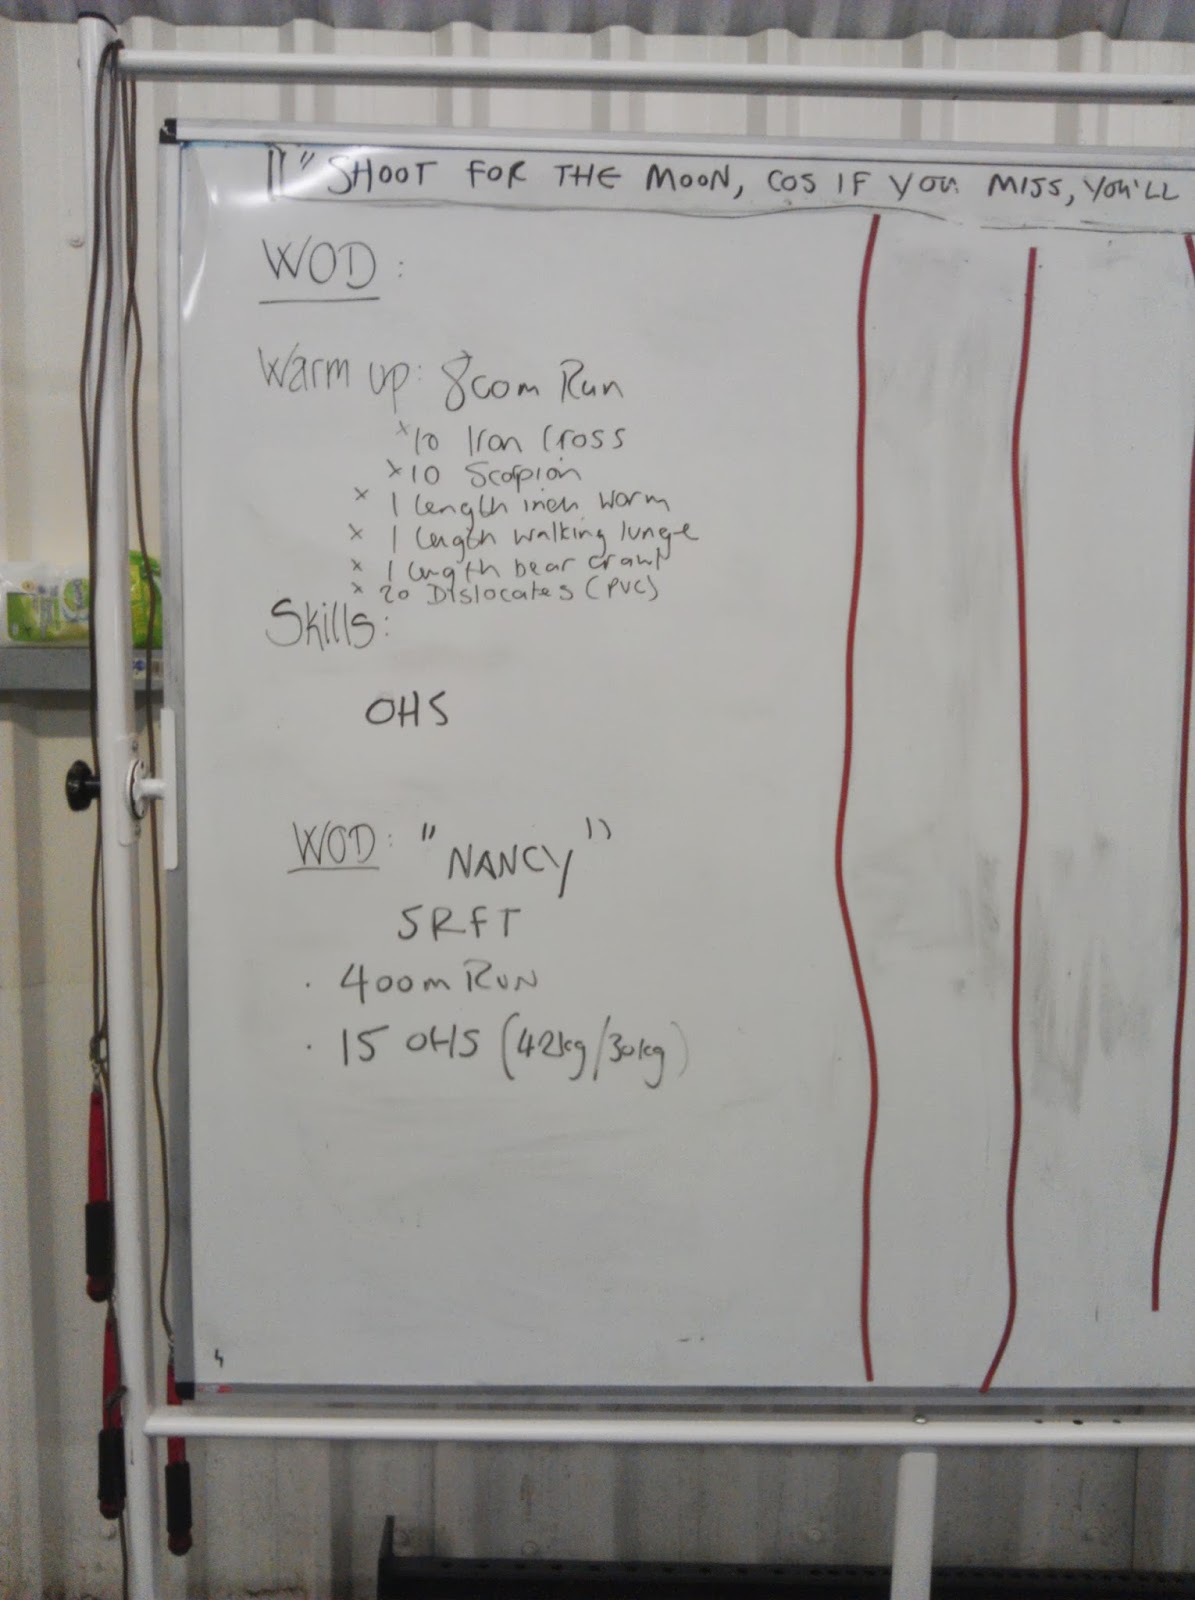 " SHOOT FOR THE MOON, COS IF YOU MISS, YOU'LL
WOD :
Warm up: 800m Run
x 10 Iron Cross
x 10 Scorpion
x 1 Length inch worm
x 1 length walking lunge
x 1 length bear crawl
x 20 Dislocates (PVC)
Skills:
OHS
WOD: "NANCY"
5RFT
· 400m RUN
· 15 OHS (42kg/30kg)